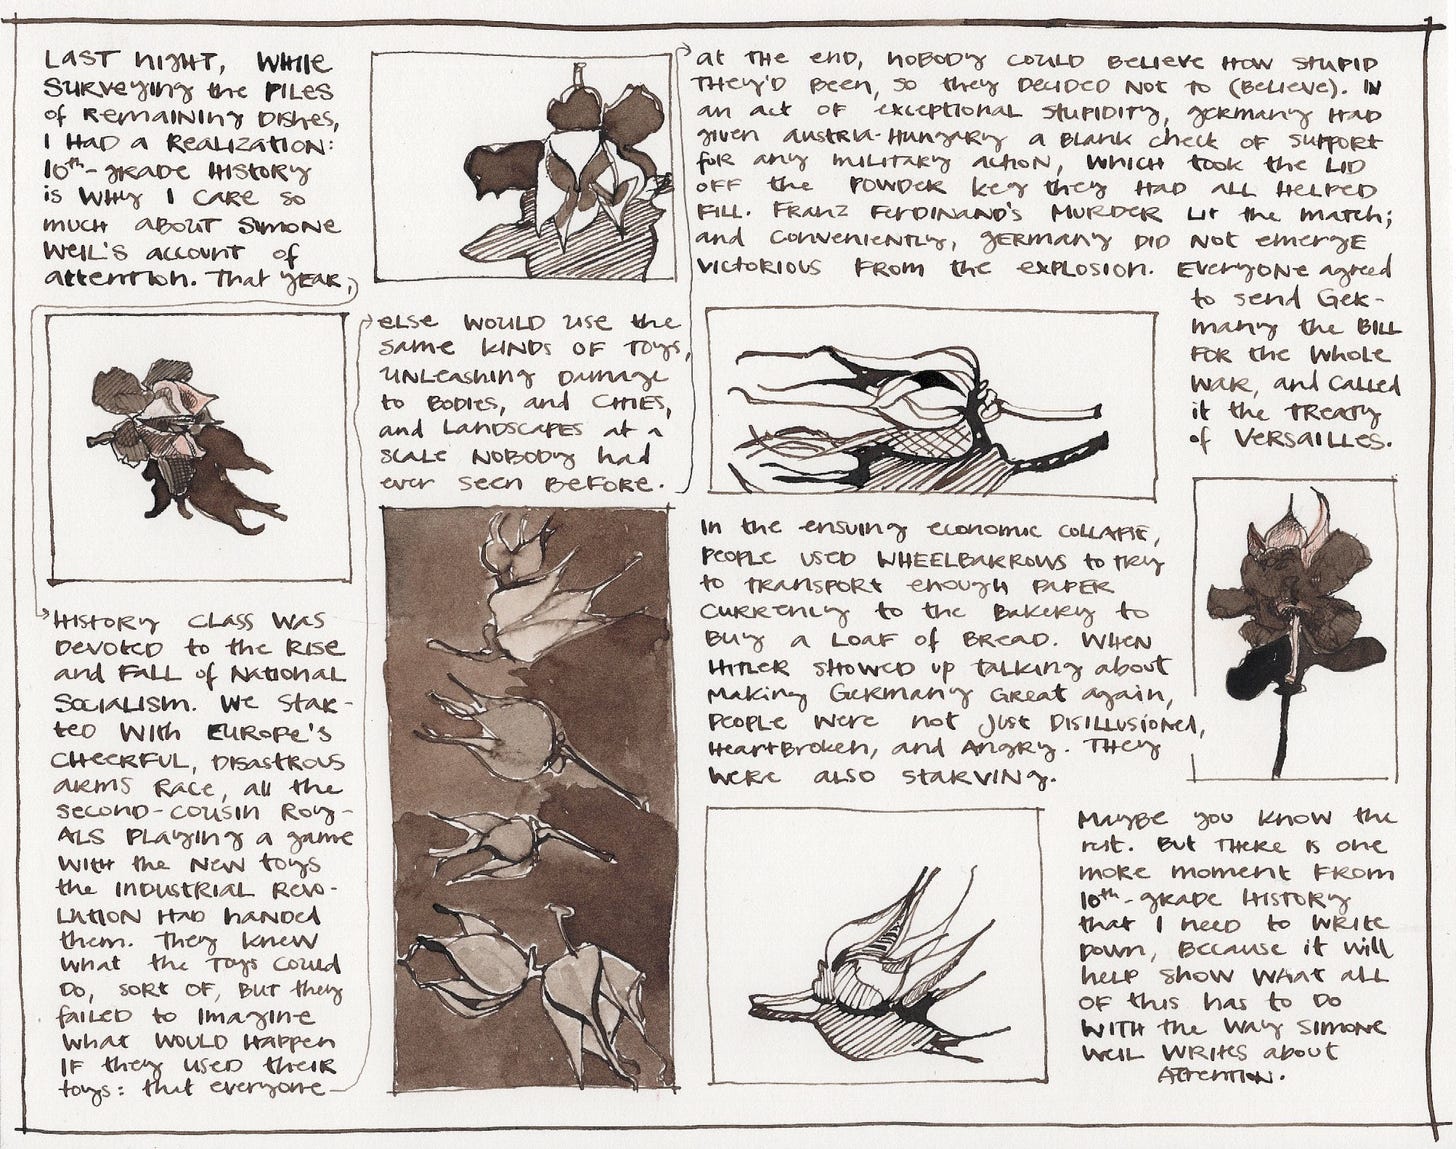 Last night, while
surveying the piles
of remaining dishes,
I had a realization:
10th-grade history
is why I care so
much about Simone
Weil's account of
attention. That year,
History class was
devoted to the rise
and fall of National
Socialism. We star-
ted with Europe's
cheerful, disastrous
arms race, all the
second-cousin roy-
als playing a game
with the new toys
the Industrial Revo-
lution had handed
them. They knew
what the toys could
do, sort of, but they
failed to imagine
what would happen
if they used their
toys: that everyone
else would use the
same kinds of toys,
unleashing damage
to bodies, and cities,
and landscapes at a
scale nobody had
ever seen before.
At the end, nobody could believe how stupid
they'd been, so they decided not to (believe). In
an act of exceptional stupidity, Germany had
given Austria-Hungary a blank check of support
for any military action, which took the lid
off the powder keg they had all helped
fill. Franz Ferdinand's murder lit the match;
and conveniently, Germany did not emerge
victorious from the explosion. Everyone agreed
to send Ger-
many the bill
for the whole
war, and called
it the Treaty
of Versailles.
In the ensuing economic collapse,
people used wheelbarrows to try
to transport enough paper
currency to the bakery to
buy a loaf of bread. When
Hitler showed up talking about
making Germany great again,
people were not just disillusioned,
heartbroken, and angry. They
were also starving.
Maybe you know the
rest. But there is one
more moment from
10th-grade history
that I need to write
down, because it will
help show what all
of this has to do
with the way Simone
Weil writes about
attention.